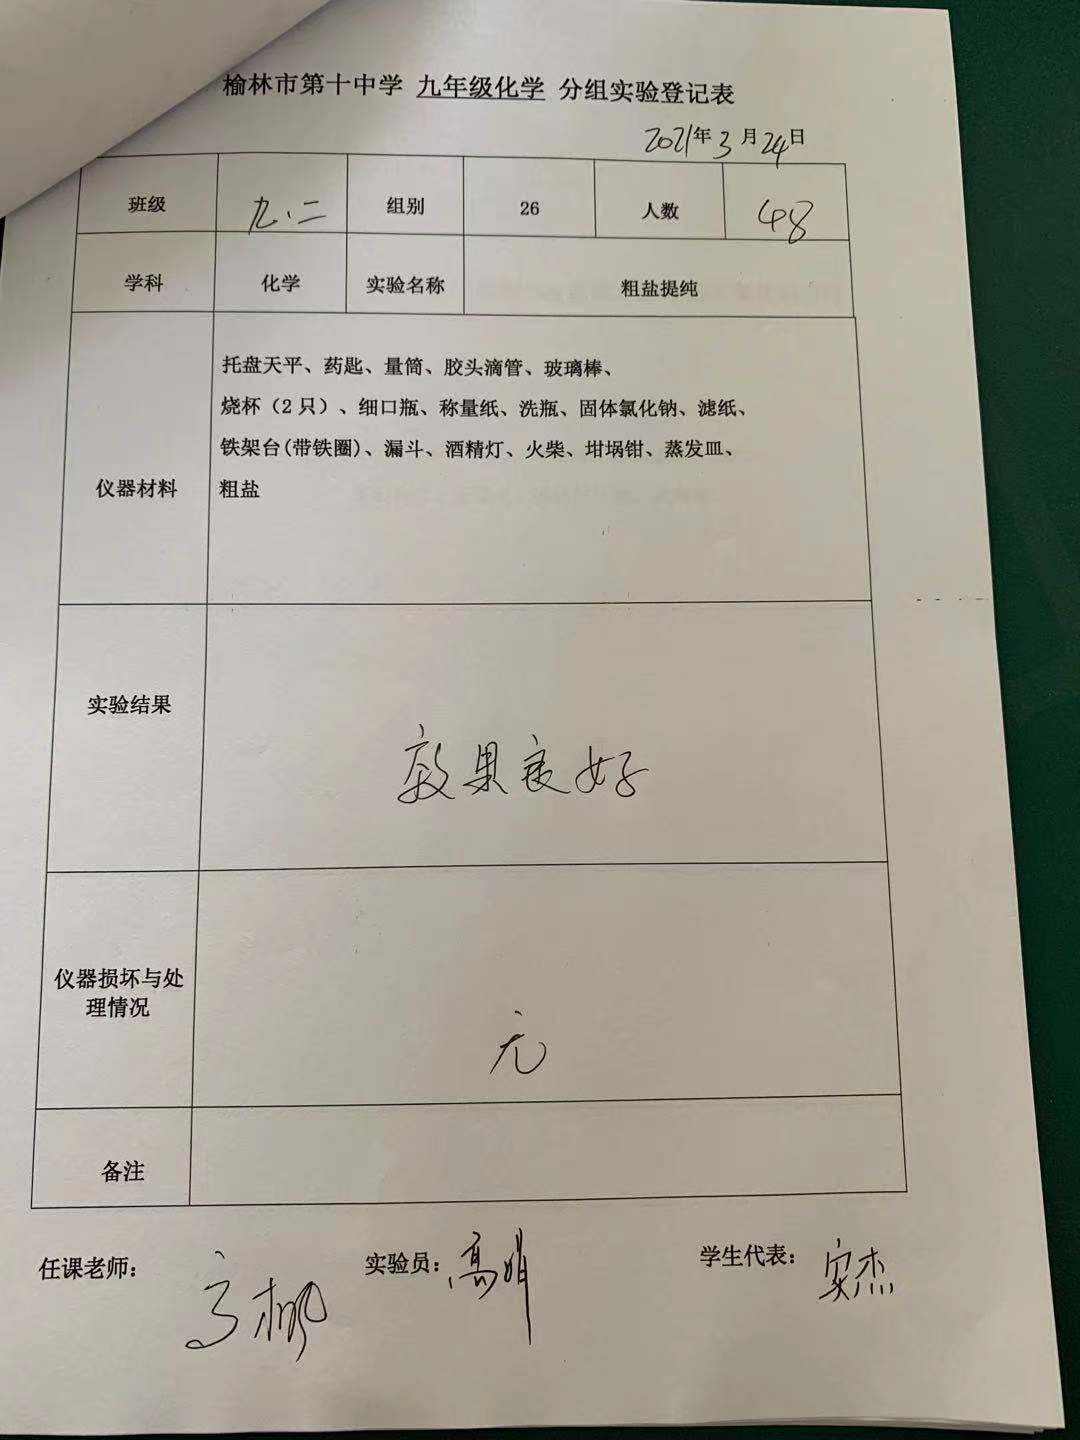 榆林市第十中学 九年级化学 分组实验登记表
2021年3月24日
班级 九.二 组别 26 人数 48
学科 化学 实验名称 粗盐提纯
仪器材料
托盘天平、药匙、量筒、胶头滴管、玻璃棒、
烧杯（2只）、细口瓶、称量纸、洗瓶、固体氯化钠、滤纸、
铁架台(带铁圈)、漏斗、酒精灯、火柴、坩埚钳、蒸发皿、
粗盐
实验结果
效果良好
仪器损坏与处
理情况
无
备注
任课老师： 实验员：高娟 学生代表：